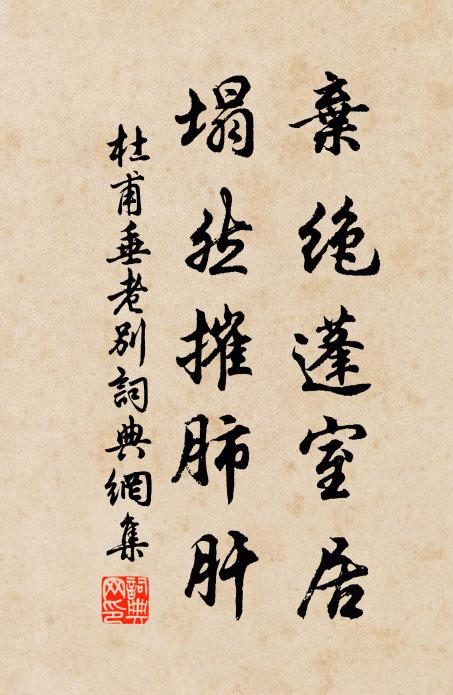 棄絕蓬室居
塌然摧肺肝
杜甫垂老別詞典網集
詞典网印